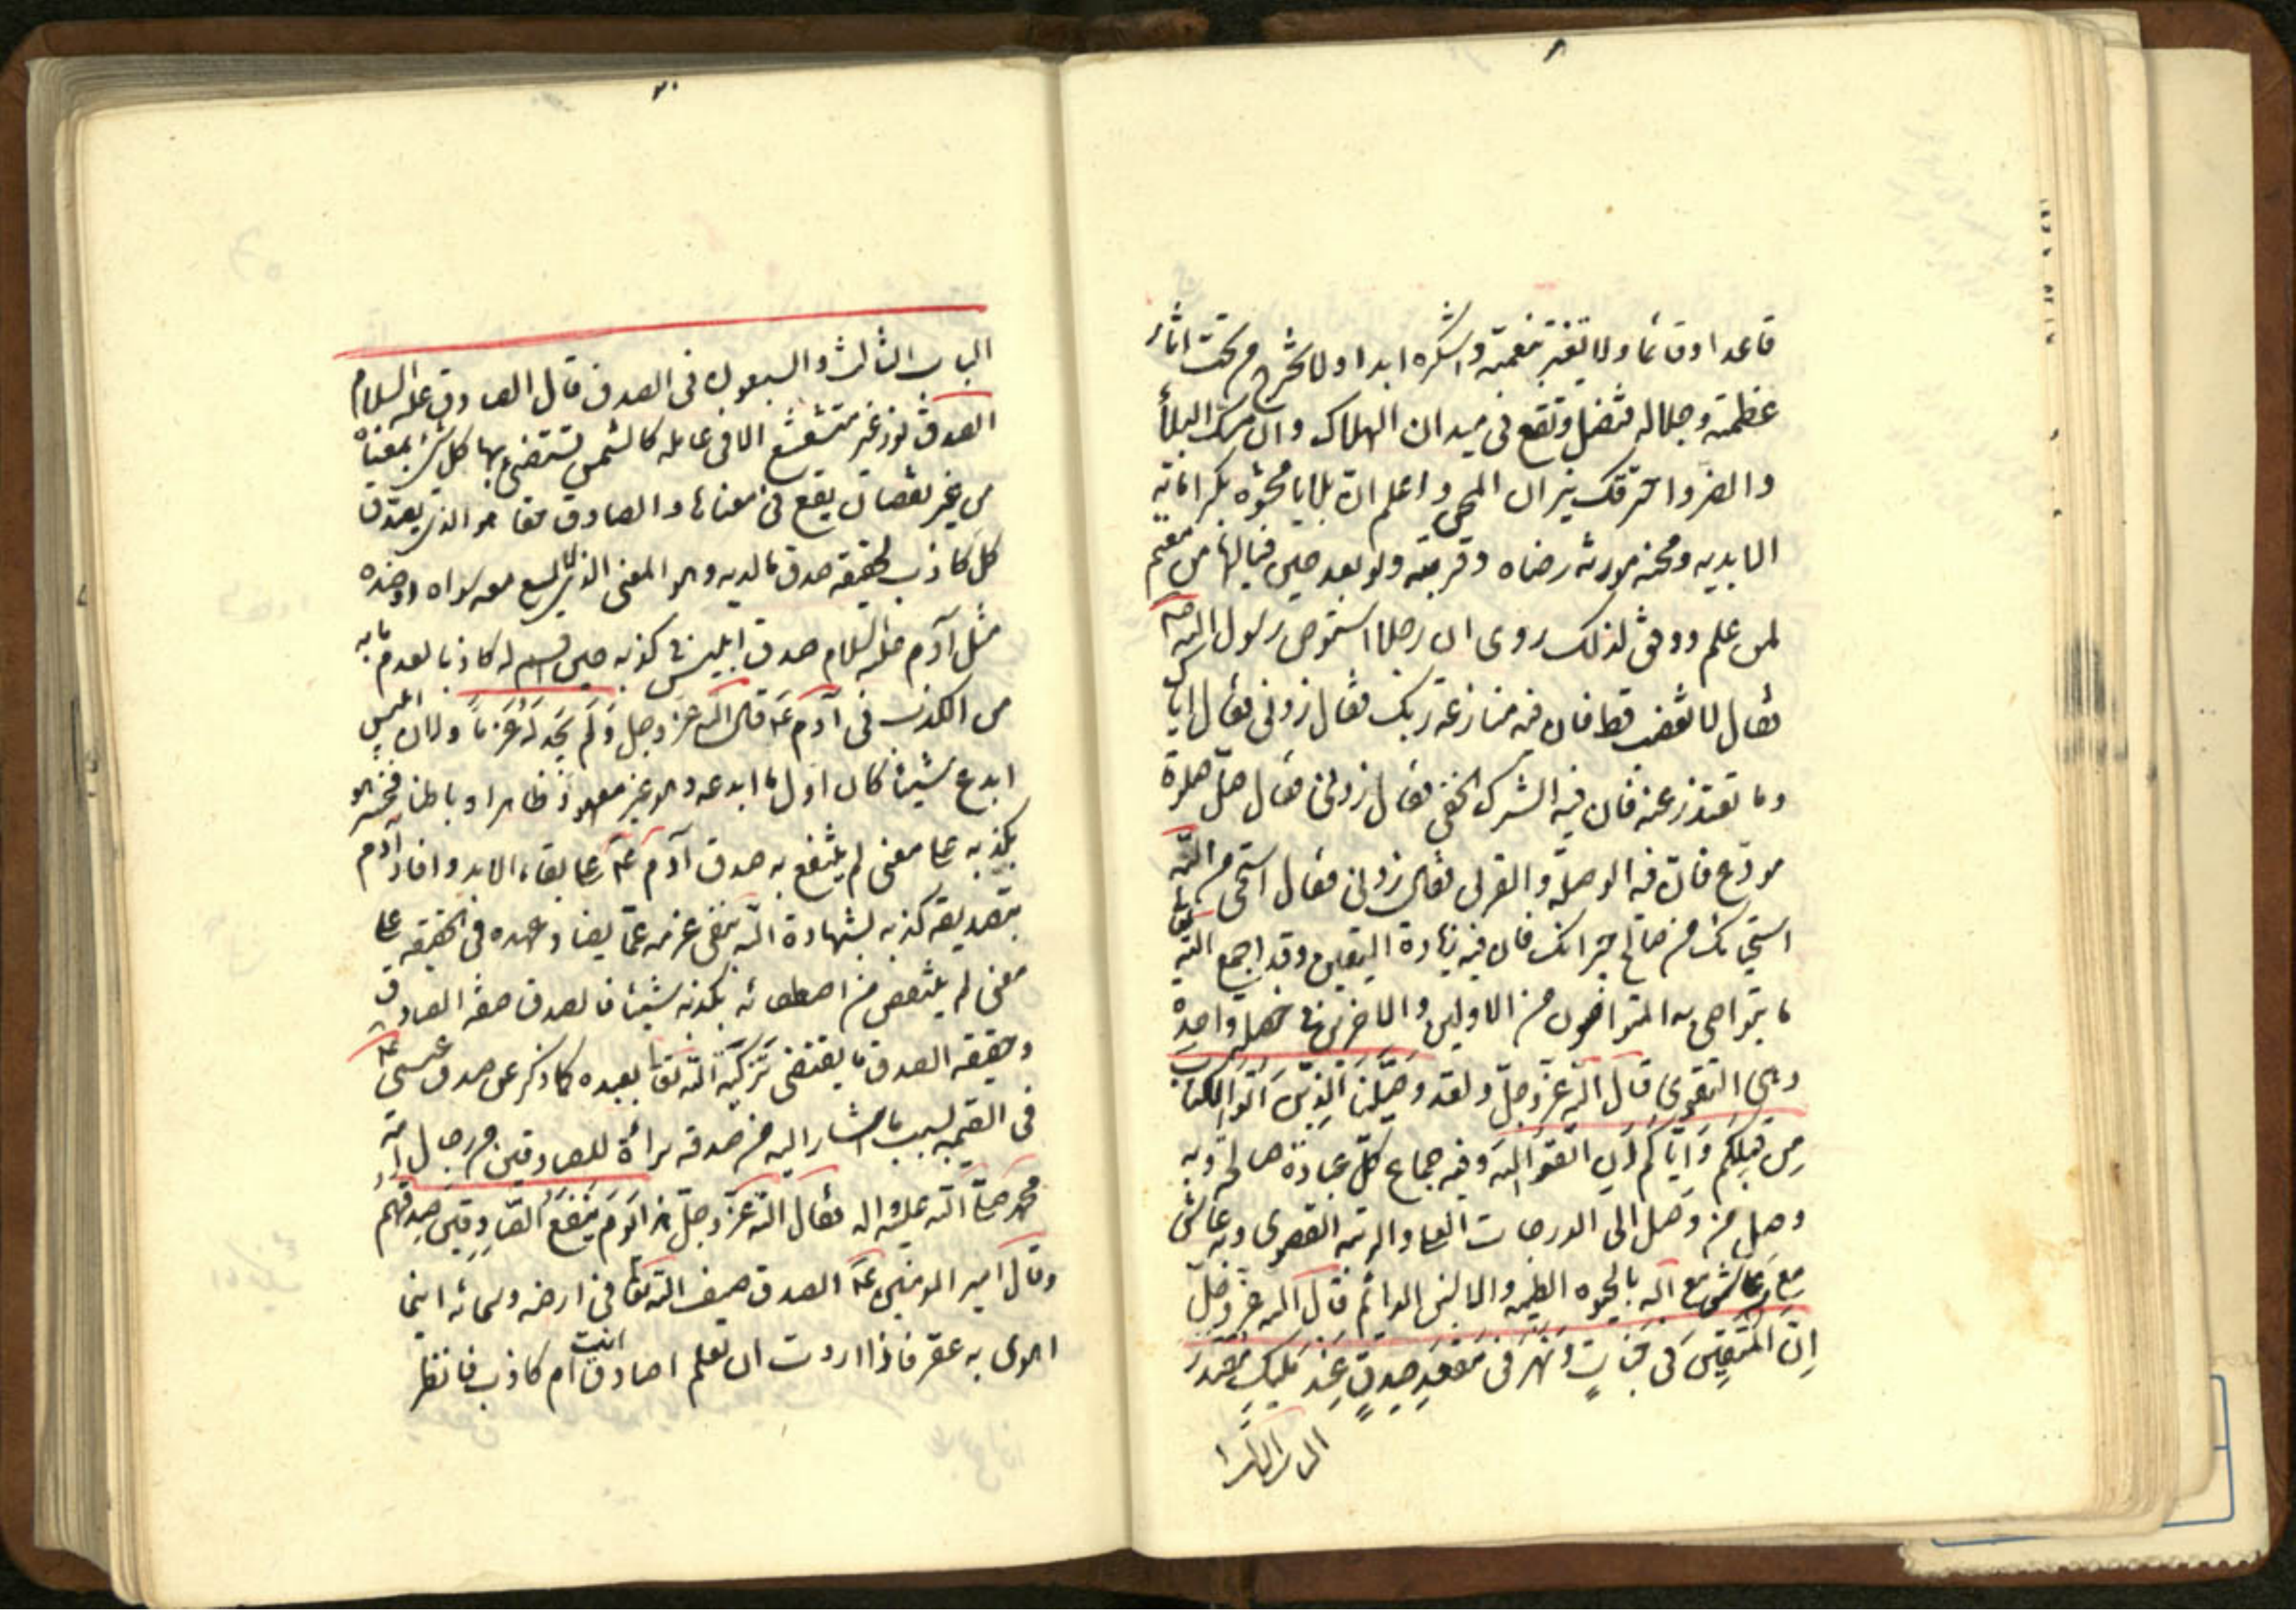 قاعدا وقائما ولا تغتر بنعمته واشكره ابدا ولا تخرج من تحت اثار
عظمته وجلاله فتضل وتقع فى ميدان الهلاك وان مسك البلأ
والضر واحرقتك نيران المحن واعلم ان بلاياه محشوه بكراماته
الابديه ومحنه مورثه رضاه وقربته ولو بعد حين فيا لها من مغنم
لمن علم ووفق لذلك روى ان رجلا استوصى رسول الله ص
فقال لا تغضب قط فان فيه منازعة ربك فقال زدنى فقال اياك
وما تعتذر عنه فان فيه الشرك الخفى فقال زدنى فقال صل صلوة
مودع فان فيه الوصلة والقربى فقال زدنى فقال استحى من الله
استحيائك من صالح جيرانك فان فيه زيادة اليقين وقد اجمع الله تعالى
ما يتواصى به المتواصون من الاولين والاخرين فى خصلة واحدة
وهى التقوى قال الله عز وجل ولقد وصينا الذين اتوا الكتاب
من قبلكم واياكم ان اتقوا الله وفيه جماع كل عبادة صالحة وبه
وصل من وصل الى الدرجات العلى والرتبه القصوى وبه عاش
مع من عاش مع الله بالحيوه الطيبه والانس الدائم قال الله عز وجل
ان المتقين فى جنات ونهر فى مقعد صدق عند مليك مقتدر
الباب الثالث والسبعون فى الصدق قال الصادق عليه السلام
الصدق نور غير متشعشع الا فى عالمه كالشمس تستضئ بها كل شئ بمعناه
من غير نقصان يقع فى معناها والصادق حقا هو الذى يصدق
كل كاذب بحقيقه صدق ما لديه وهو المعنى الذى لا يسع معه سواه او ضده
مثل آدم عليه السلام صدق ابليس فى كذبه حين اقسم له كاذبا لعدم ما به
من الكذب فى آدم عه قال الله عز وجل ولم نجد له عزما ولان ابليس
ابدع شيئا كان اول ما ابدعه وهو غير معهود ظاهرا وباطنا فخسر هو
بكذبه على معنى لم ينتفع به صدق آدم عه على بقاء الابد وافاد آدم
بتصديقه كذبه بشهادة الله بنفى عزمه عما يضاد عهده فى الحقيقه على
معنى لم ينتقص من اصطفائه بكذبه شيئا فالصدق صفه الصادق
وحقيقه الصدق ما يقتضى تزكية الله تعالى بعبده كما ذكر عن صدق عيسى عه
فى القيمه بسبب ما اشار اليه من صدقه براءة للصادقين من رجال امة
محمد صلى الله عليه واله فقال الله عز وجل هذا يوم ينفع الصادقين صدقهم
وقال امير المومنين عه الصدق سيف الله تعالى فى ارضه وسمائه اينما
اهوى به عقر فاذا اردت ان تعلم اصادق انت ام كاذب فانظر